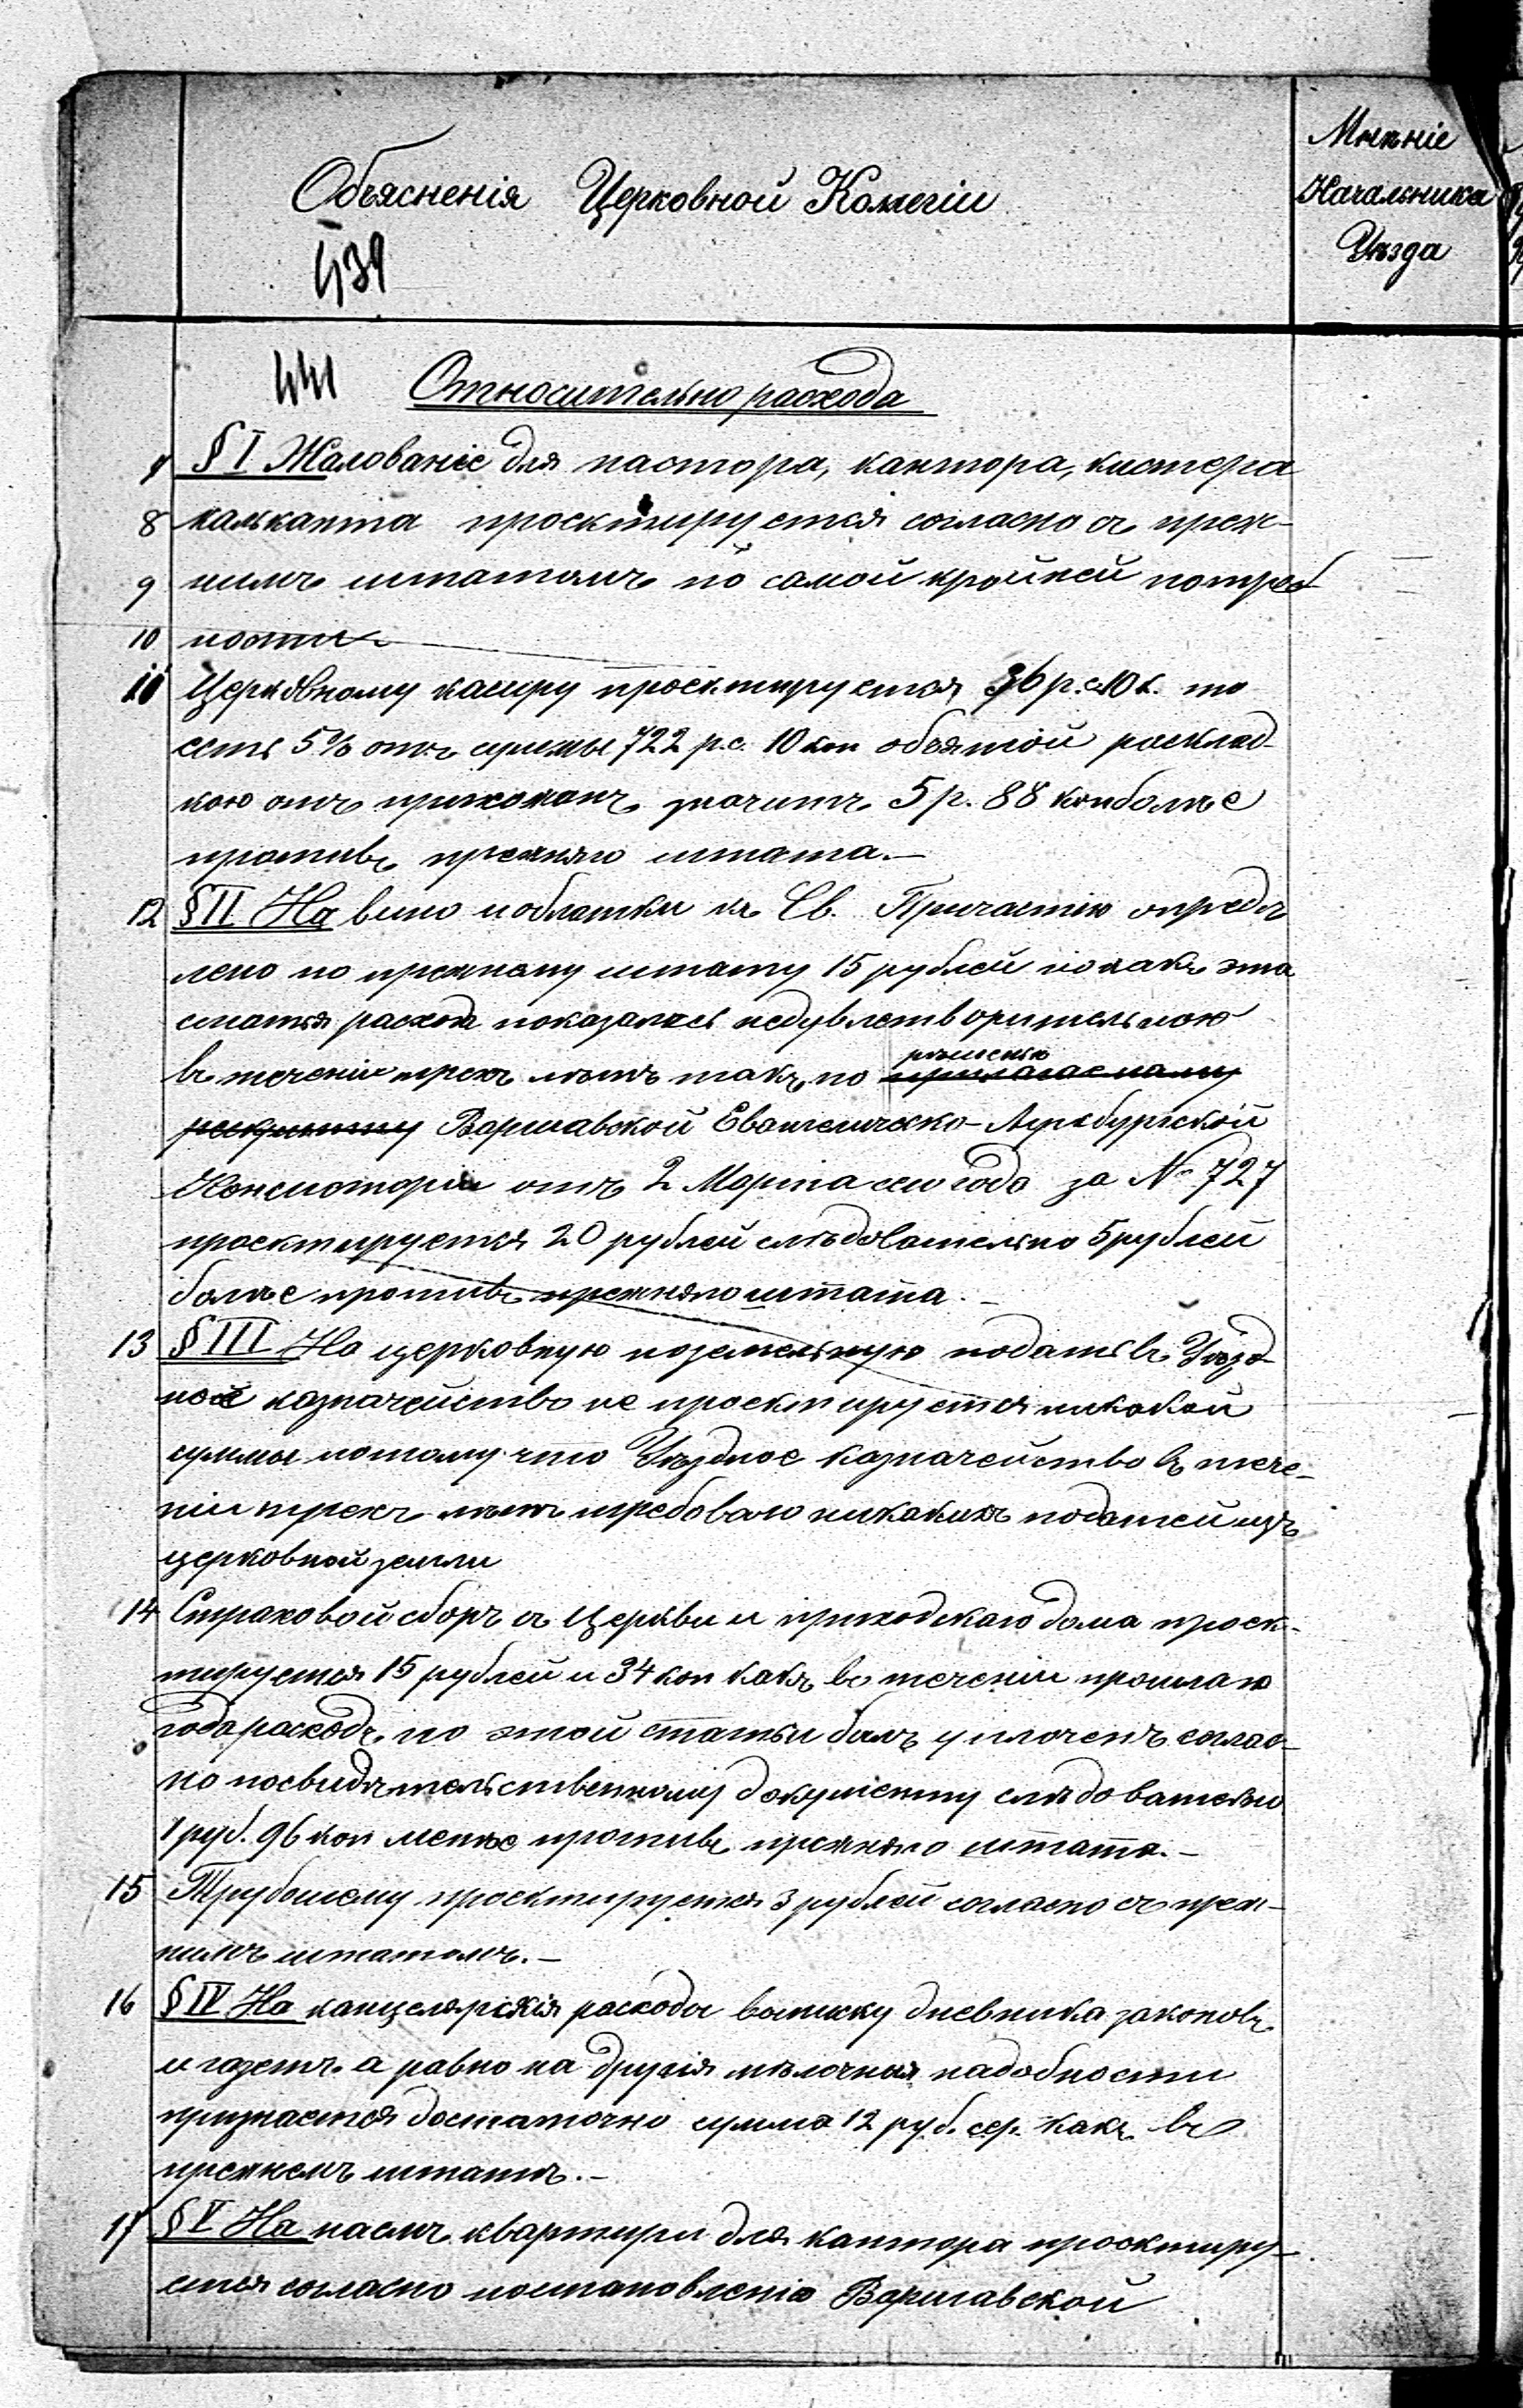 Мнѣніе
Начальника
Уѣзда
Объясненія Церковной Колегіи
439
441 Относительно расхода
§ I Жалованіе для пастора, кантора, кистера
8 калканта проектируется согласно съ преж-
9 нимъ штатомъ по самой крайней потреб
10 ности
11 Церковному касиру проектируется 36 р. с. 10 к. то
есть 5% отъ суммы 722 р.с. 10 коп объятой расклад-
кою отъ прихожанъ значитъ 5 р. 88 коп болѣе
противъ прежняго штата.—
12 § II На вино и облатки къ Св. Причастію опредѣ
лено по прежнему штату 15 рублей но какъ эта
статья расхода показалась недувлетворительною
въ теченіи трехъ лѣтъ такъ по прилагаемому
рѣшенію
рескрипту Варшавской Евангелическо-Аугсбургской
Консисторіи отъ 2 Марта сего года за № 727
проектируется 20 рублей слѣдовательно 5 рублей
болѣе противъ прежняго штата.—
13 § III На церковную поземельную подать въ Уѣзд-
ное казначейство не проектируется никакой
суммы потому что Уѣздное казначейство въ тече-
ніи трехъ лѣтъ требовало никакихъ податей изъ
церковной земли
14 Страховой сборъ съ Церкви и приходскаго дома проек-
тируется 15 рублей и 34 коп какъ въ теченіи прошлаго
года расходъ по этой статьи былъ уплоченъ соглас-
но посвидѣтельственному документу слѣдовательно
1 руб. 96 коп менѣе противъ прежняго штата.—
15 Трубочему проектируется 3 рублей согласно съ преж-
нимъ штатомъ.—
16 § IV На канцелярскія расходы выписку дневника законовъ
и газетъ а равно на другія мѣлочныя надобности
признается достаточно сумма 12 руб. сер. какъ въ
прежнемъ штатѣ.—
17 § V На наемъ квартиры для кантора проектиру-
ется согласно постановленію Варшавской